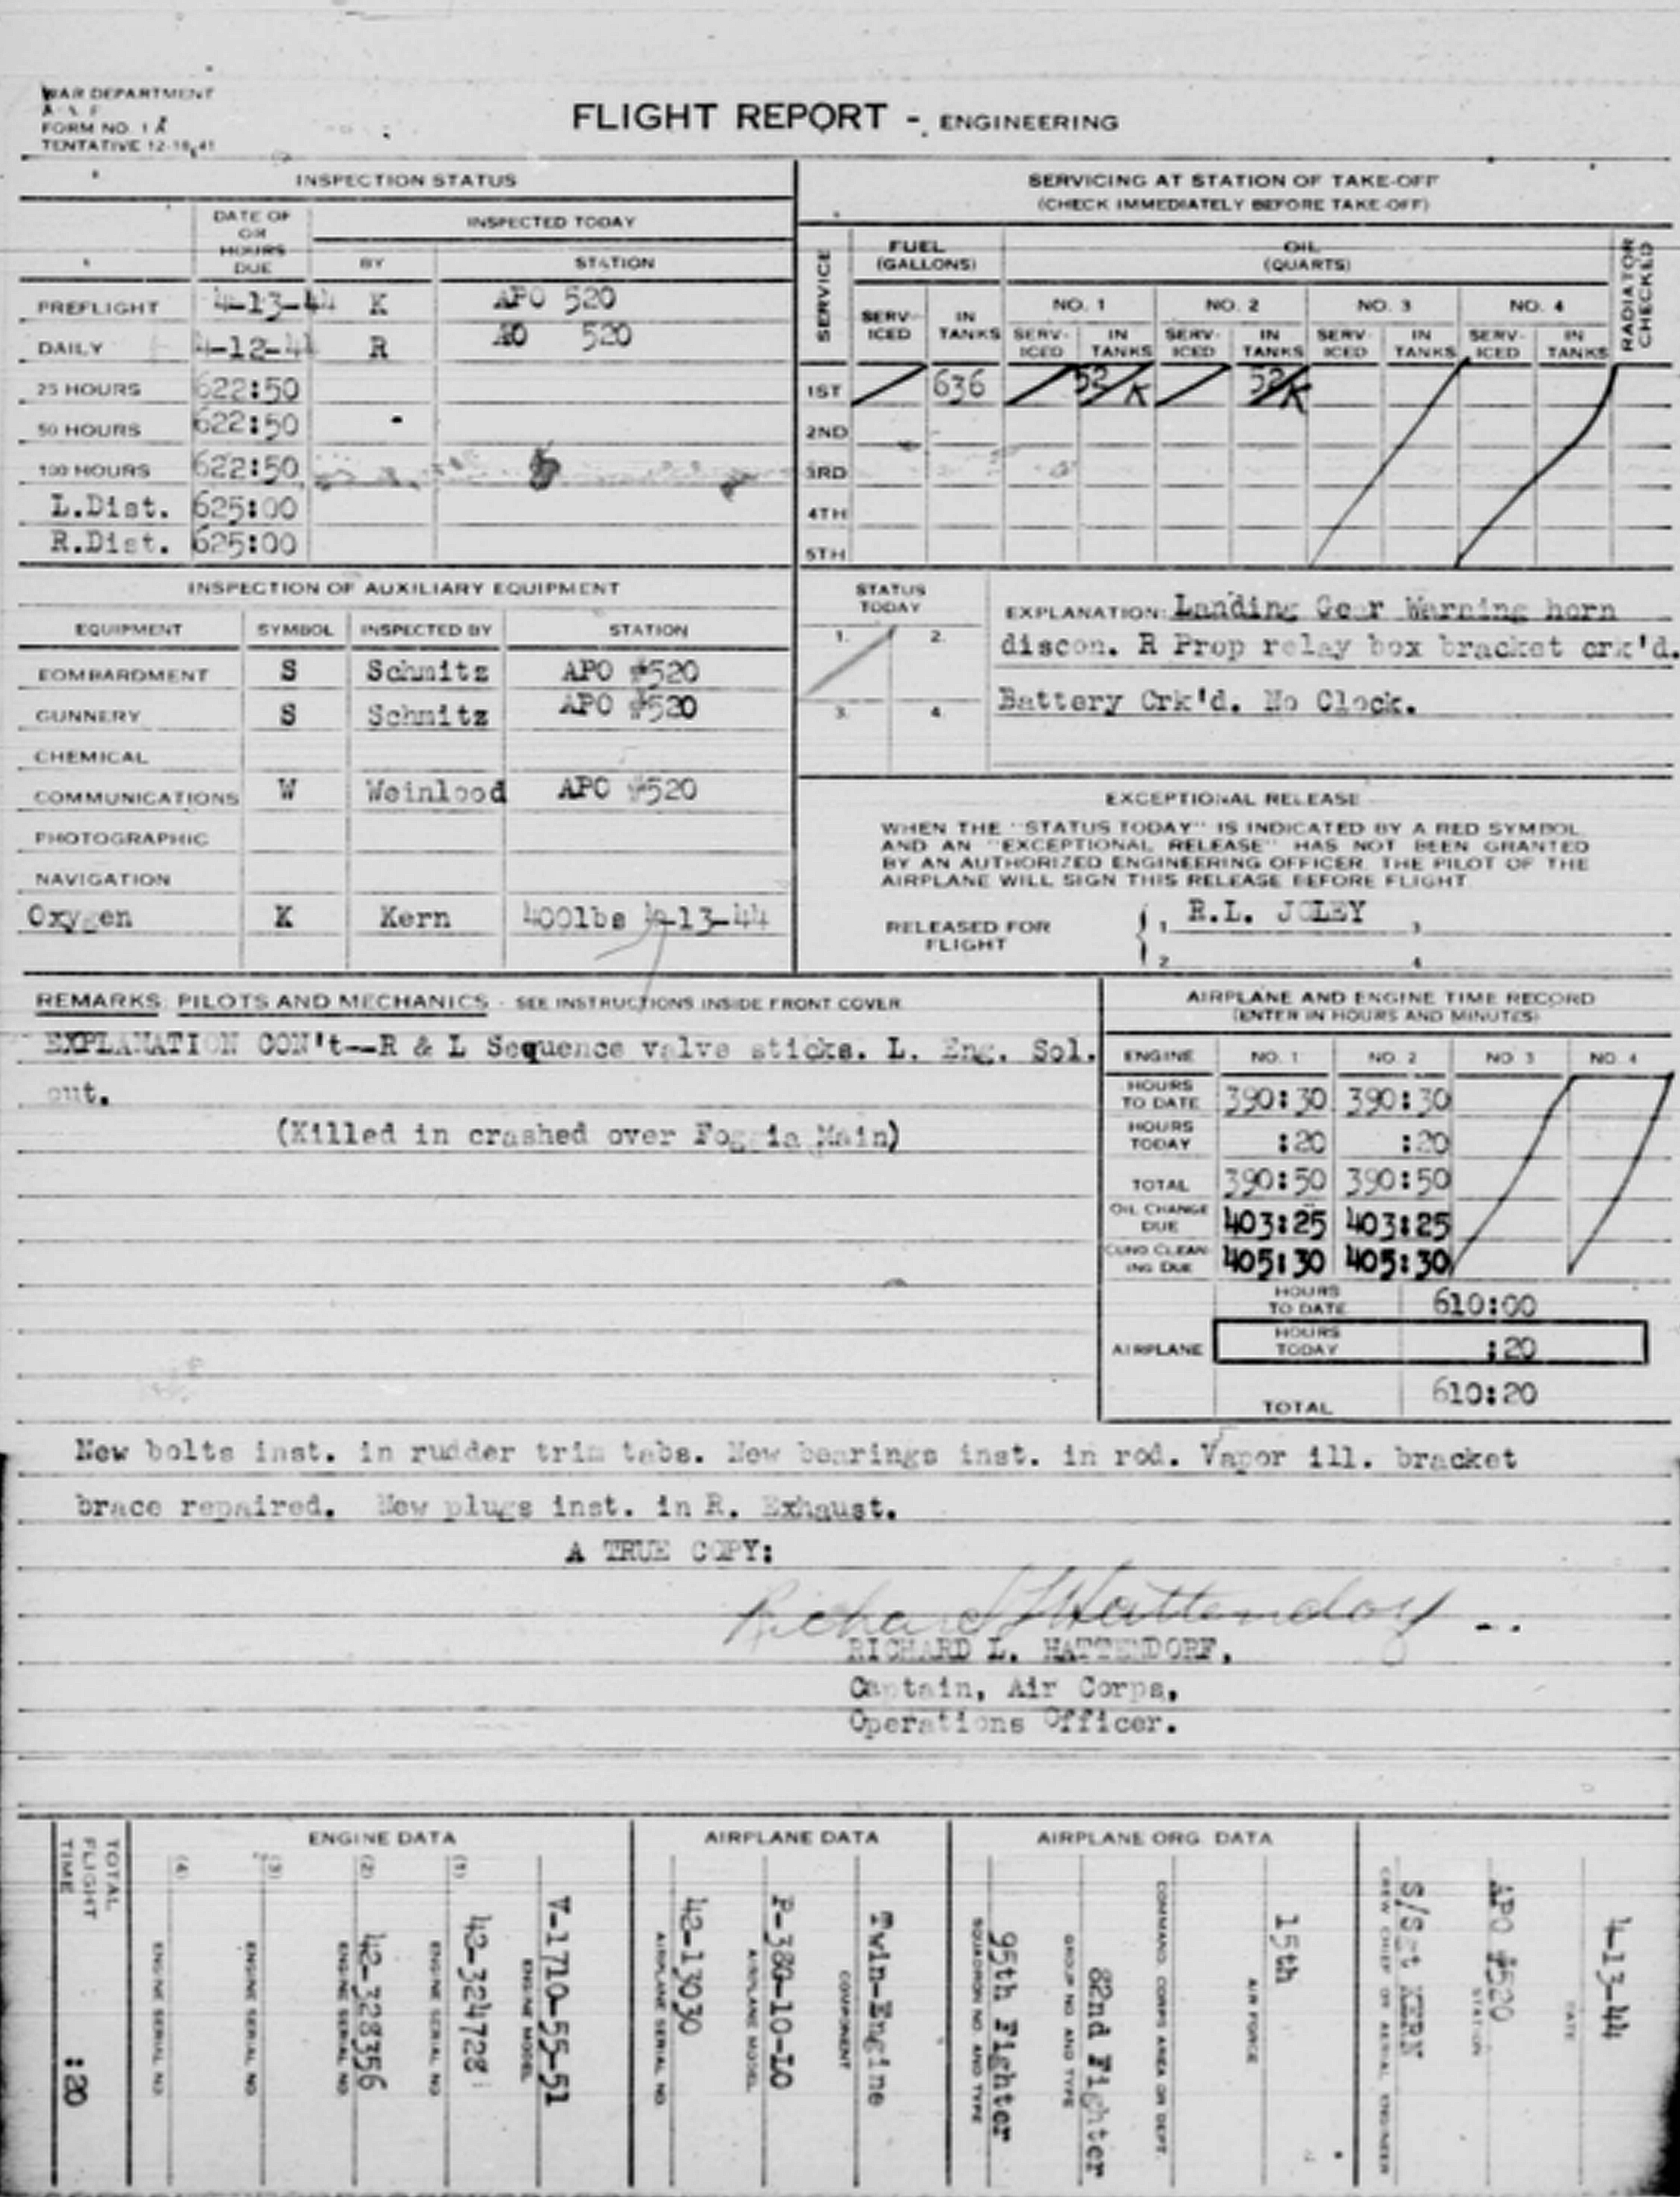 WAR DEPARTMENT
A A F
FORM NO. 1 A
TENTATIVE 12-18-41
FLIGHT REPORT - ENGINEERING
INSPECTION STATUS
DATE OF OR HOURS DUE
INSPECTED TODAY
BY
STATION
PREFLIGHT 4-13-44 K APO 520
DAILY 4-12-44 R AO 520
25 HOURS 622:50
50 HOURS 622:50
100 HOURS 622:50
L.Dist. 625:00
R.Dist. 625:00
SERVICING AT STATION OF TAKE-OFF
(CHECK IMMEDIATELY BEFORE TAKE-OFF)
SERVICE
FUEL (GALLONS)
OIL (QUARTS)
RADIATOR CHECKED
NO. 1 NO. 2 NO. 3 NO. 4
SERV-ICED IN TANKS SERV-ICED IN TANKS SERV-ICED IN TANKS SERV-ICED IN TANKS SERV-ICED IN TANKS
1ST 636 52 K 52 K
2ND
3RD
4TH
5TH
INSPECTION OF AUXILIARY EQUIPMENT
EQUIPMENT SYMBOL INSPECTED BY STATION
BOMBARDMENT S Schmitz APO #520
GUNNERY S Schmitz APO #520
CHEMICAL
COMMUNICATIONS W Weinlood APO #520
PHOTOGRAPHIC
NAVIGATION
Oxygen K Kern 400lbs 4-13-44
STATUS TODAY
1. 2.
3. 4.
EXPLANATION: Landing Gear Warning horn
discon. R Prop relay box bracket crk'd.
Battery Crk'd. No Clock.
EXCEPTIONAL RELEASE
WHEN THE "STATUS TODAY" IS INDICATED BY A RED SYMBOL
AND AN "EXCEPTIONAL RELEASE" HAS NOT BEEN GRANTED
BY AN AUTHORIZED ENGINEERING OFFICER, THE PILOT OF THE
AIRPLANE WILL SIGN THIS RELEASE BEFORE FLIGHT
RELEASED FOR FLIGHT
1. R.L. JOLEY 3.
2. 4.
REMARKS: PILOTS AND MECHANICS - SEE INSTRUCTIONS INSIDE FRONT COVER
EXPLANATION CON't--R & L Sequence valve sticks. L. Eng. Sol.
out.
(Killed in crashed over Foggia Main)
AIRPLANE AND ENGINE TIME RECORD
(ENTER IN HOURS AND MINUTES)
ENGINE NO. 1 NO. 2 NO. 3 NO. 4
HOURS TO DATE 390:30 390:30
HOURS TODAY :20 :20
TOTAL 390:50 390:50
OIL CHANGE DUE 403:25 403:25
CUNO CLEAN-ING DUE 405:30 405:30
AIRPLANE
HOURS TO DATE 610:00
HOURS TODAY :20
TOTAL 610:20
New bolts inst. in rudder trim tabs. New bearings inst. in rod. Vapor ill. bracket
brace repaired. New plugs inst. in R. Exhaust.
A TRUE COPY:
Richard L Hattendorf
RICHARD L. HATTENDORF,
Captain, Air Corps,
Operations Officer.
4-13-44
DATE
APO #520
STATION
S/Sgt KERN
CREW CHIEF OR AERIAL ENGINEER
AIRPLANE ORG. DATA
15th
AIR FORCE
COMMAND, CORPS AREA OR DEPT.
82nd Fighter
GROUP NO. AND TYPE
95th Fighter
SQUADRON NO. AND TYPE
AIRPLANE DATA
Twin-Engine
COMPONENT
P-38G-10-LO
AIRPLANE MODEL
42-13030
AIRPLANE SERIAL NO.
ENGINE DATA
V-1710-55-51
ENGINE MODEL
(1) 42-324728
ENGINE SERIAL NO.
(2) 42-328356
ENGINE SERIAL NO.
(3)
ENGINE SERIAL NO.
(4)
ENGINE SERIAL NO.
TOTAL FLIGHT TIME :20